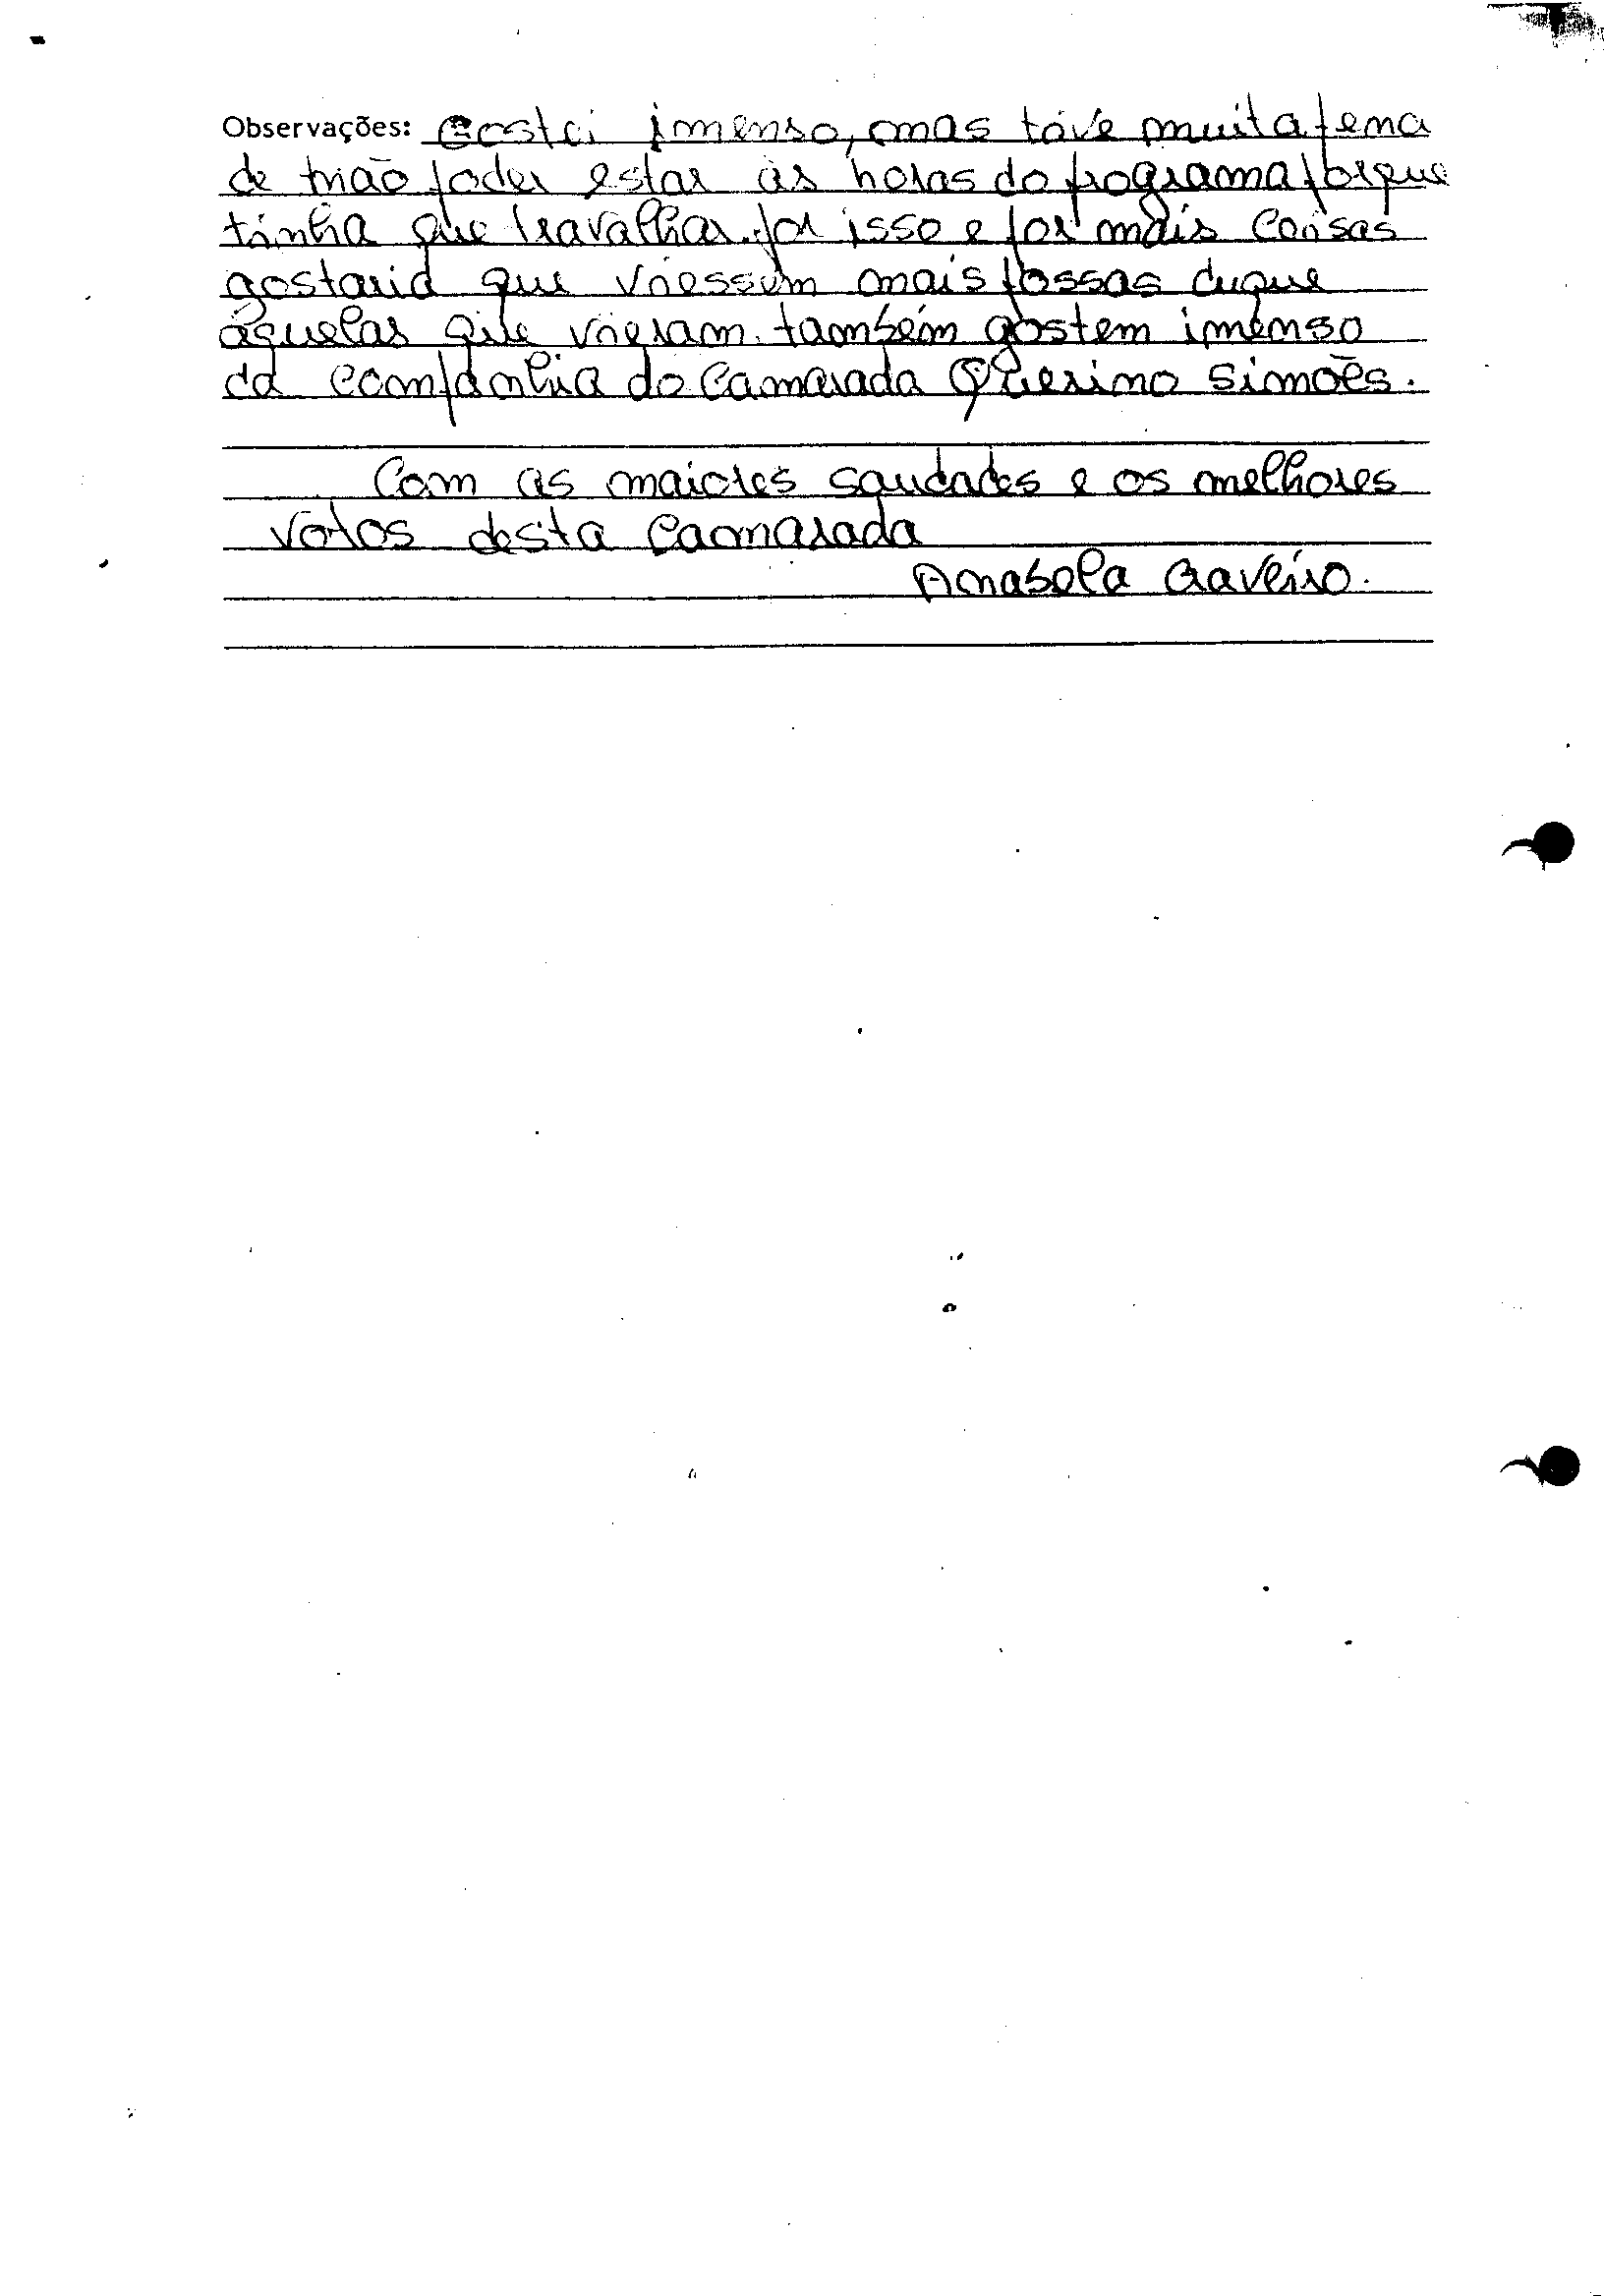 Observações: Gostei imenso, mas tive muita pena
de não poder estar às horas do programa porque
tinha que travalhar. por isso e por mais coisas
gostaria que viessem mais possas duque
aquelas que vieram. também gostem imenso
da companhia do camarada Querino Simões.
Com as maiores saudades e os melhores
votos desta camarada
Anabela Gaveiro.